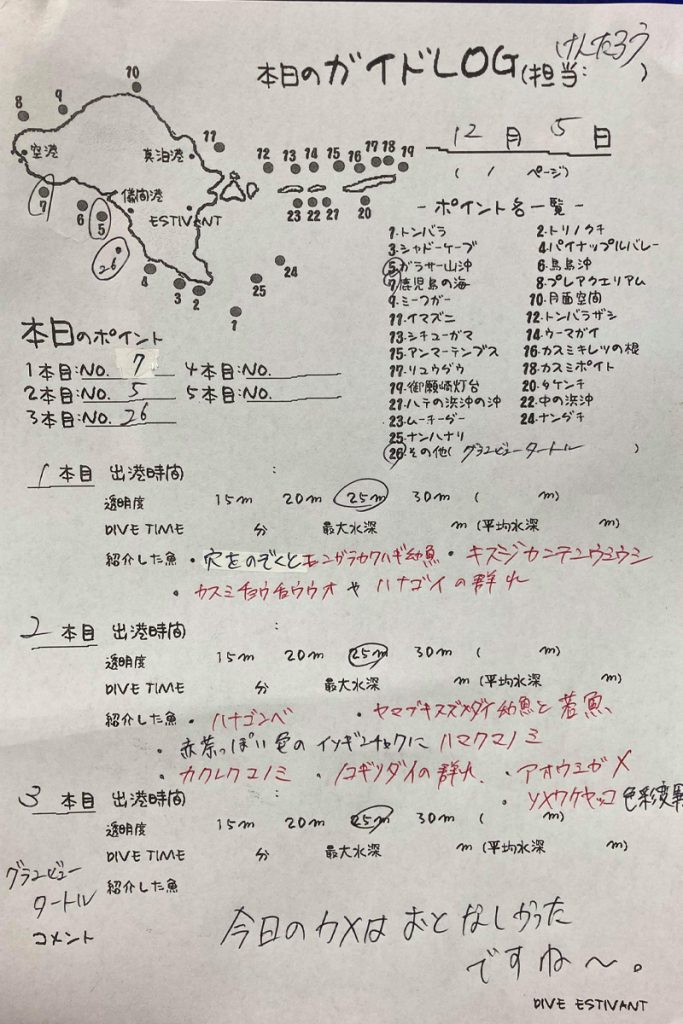 本日のガイドLOG(担当: けんたろう )
12月 5日
( 1 ページ)
8 9 10 11 12 13 14 15 16 17 18 19
空港 真泊港
儀間港
ESTIVANT
7 6 5 26 4 3 2 1 25 24 23 22 21 20
- ポイント名一覧 -
1.トンバラ 2.トリノクチ
3.シャドーケーブ 4.パイナップルバレー
5.ガラサー山沖 6.鳥島沖
7.鹿児島の海 8.プレアクエリアム
9.ミーフガー 10.月面空間
11.イマズニ 12.トンバラザシ
13.シチューガマ 14.ウーマガイ
15.アンマーテンプス 16.カスミキレツの根
17.リュウダウ 18.カスミポイト
19.御願崎灯台 20.タケンチ
21.ハテの浜沖の沖 22.中の浜沖
23.ムーチーダー 24.ナンダチ
25.ナンハナリ
26.その他( グランビュータートル )
本日のポイント
1本目:NO. 7 4本目:NO.
2本目:NO. 5 5本目:NO.
3本目:NO. 26
1 本目 出港時間 :
透明度 15m 20m 25m 30m ( m)
DIVE TIME 分 最大水深 m (平均水深 m)
紹介した魚 ・穴をのぞくとモンガラカワハギ幼魚 ・キスジカンテンウミウシ
・カスミチョウチョウウオや ハナゴイの群れ
2 本目 出港時間 :
透明度 15m 20m 25m 30m ( m)
DIVE TIME 分 最大水深 m (平均水深 m)
紹介した魚 ・ハナゴンベ ・ヤマブキスズメダイ幼魚と若魚、
・赤茶っぽい色のイソギンチャクにハマクマノミ
・カクレクマノミ ・ノコギリダイの群れ ・アオウミガメ
・ソメワケヤッコ色彩変異
3 本目 出港時間 :
透明度 15m 20m 25m 30m ( m)
DIVE TIME 分 最大水深 m (平均水深 m)
グランビュー
タートル
紹介した魚
コメント
今日のカメはおとなしかった
ですね〜。
DIVE ESTIVANT